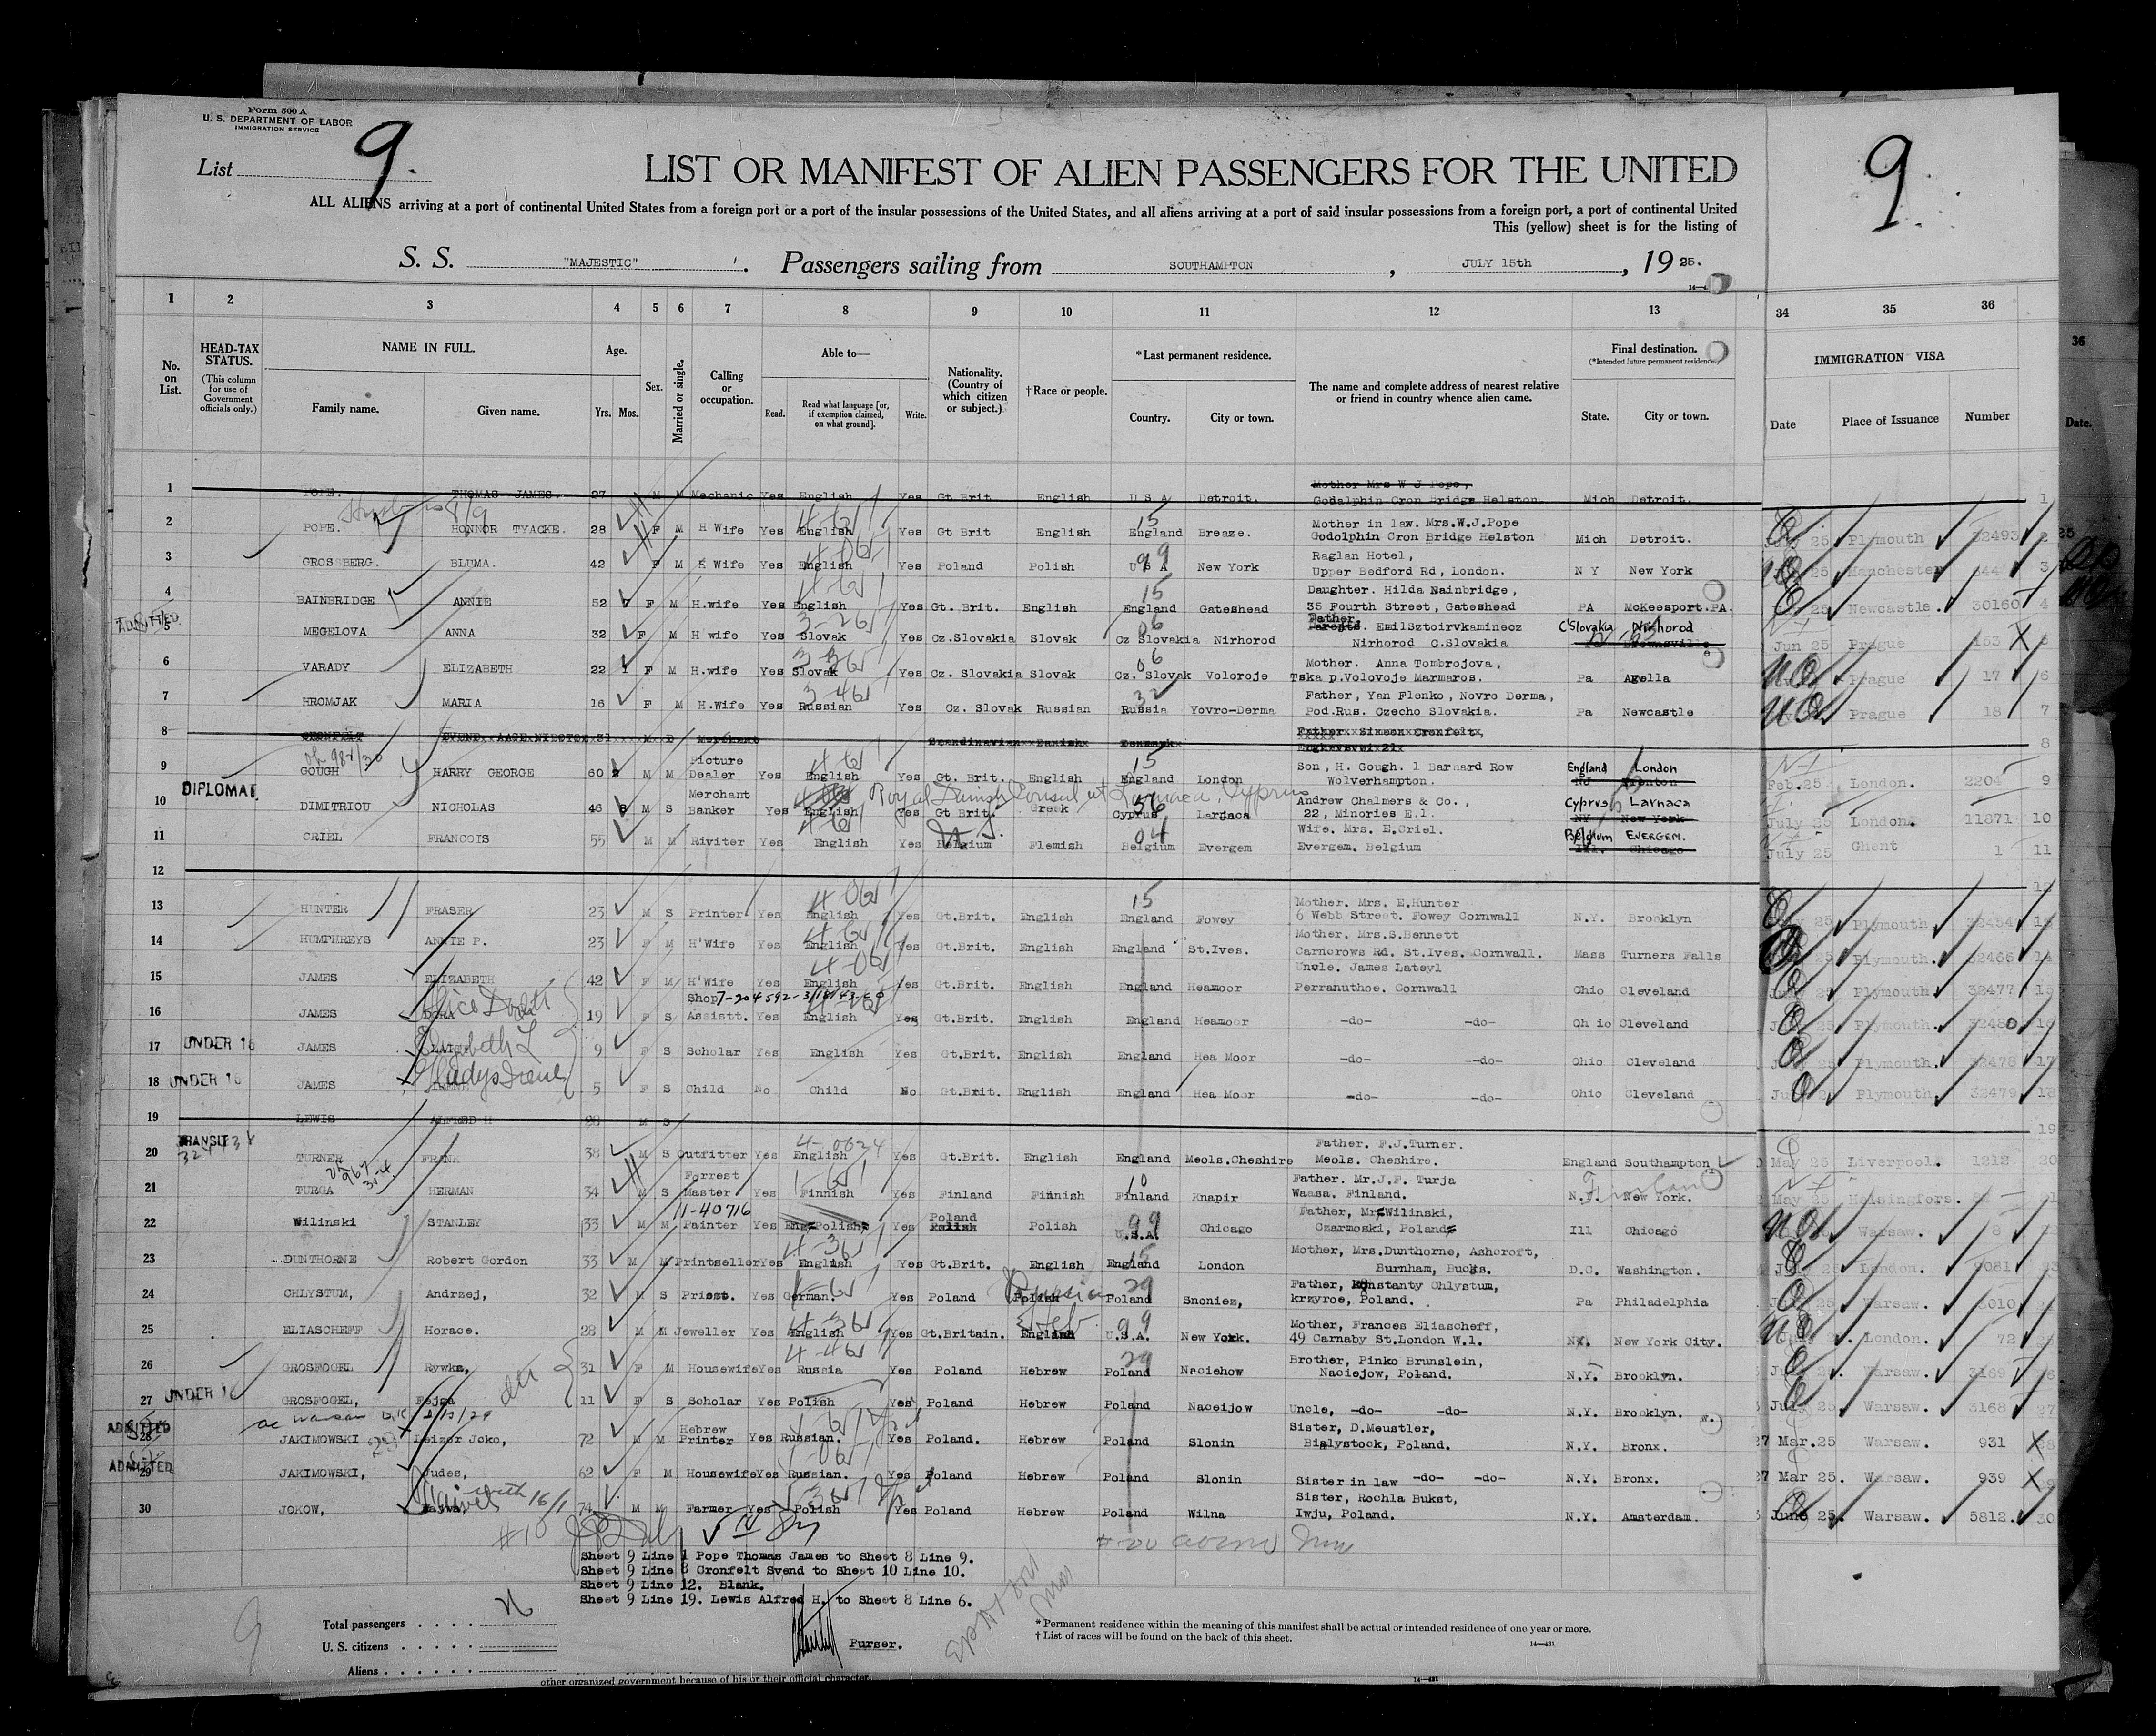 Form 500 A
U. S. DEPARTMENT OF LABOR
IMMIGRATION SERVICE
List 9.
9.
LIST OR MANIFEST OF ALIEN PASSENGERS FOR THE UNITED
ALL ALIENS arriving at a port of continental United States from a foreign port or a port of the insular possessions of the United States, and all aliens arriving at a port of said insular possessions from a foreign port, a port of continental United
This (yellow) sheet is for the listing of
S. S. "MAJESTIC" Passengers sailing from SOUTHAMPTON, JULY 15th, 1925.
1 2 3 4 5 6 7 8 9 10 11 12 13 34 35 36
No. on List.
HEAD-TAX STATUS. (This column for use of Government officials only.)
NAME IN FULL. Family name. Given name.
Age. Yrs. Mos.
Sex.
Married or single.
Calling or occupation.
Able to— Read. Read what language [or, if exemption claimed, on what ground]. Write.
Nationality. (Country of which citizen or subject.)
†Race or people.
*Last permanent residence. Country. City or town.
The name and complete address of nearest relative or friend in country whence alien came.
Final destination. (*Intended future permanent residence.) State. City or town.
IMMIGRATION VISA Date Place of Issuance Number
36 Date.
1 POPE. THOMAS JAMES. 27 M M Mechanic Yes English Yes Gt Brit English U S A Detroit. Mother Mrs W J Pope, Godolphin Cron Bridge Helston Mich Detroit. 1
2 POPE. HONNOR TYACKE. 28 F M H Wife Yes English Yes Gt Brit English England Breaze. Mother in law. Mrs.W.J.Pope Godolphin Cron Bridge Helston Mich Detroit. 25 Plymouth 32493 2
3 GROSSBERG. BLUMA. 42 F M H Wife Yes English Yes Poland Polish U S A New York Raglan Hotel, Upper Bedford Rd, London. N Y New York 25 Manchester 3
4 BAINBRIDGE ANNIE 52 F M H.wife Yes English Yes Gt. Brit. English England Gateshead Daughter. Hilda Nainbridge, 35 Fourth Street, Gateshead PA McKeesport.PA. 25 Newcastle. 30160 4
5 MEGELOVA ANNA 32 F M H wife Yes Slovak Yes Cz.Slovakia Slovak Cz Slovakia Nirhorod Father, Parents. EmilSztoirvkaminecz Nirhorod C.Slovakia C'Slovakia Nirhorod Pa Brownsville Jun 25 Prague 153 5
6 VARADY ELIZABETH 22 F M H.wife Yes Slovak Yes Cz. Slovakia Slovak Cz. Slovak Voloroje Mother. Anna Tombrojova, Tska p.Volovoje Marmaros. Pa Avella Prague 17 6
7 HROMJAK MARIA 16 F M H.Wife Yes Russian Yes Cz. Slovak Russian Russia Yovro-Derma Father, Yan Flenko, Novro Derma, Pod.Rus. Czecho Slovakia. Pa Newcastle Prague 18 7
8 CRONFELT SVEND Merchant Scandinavian Danish Denmark Father Simson Cronfelt 8
9 GOUGH HARRY GEORGE 60 M M Picture Dealer Yes English Yes Gt. Brit. English England London Son, H. Gough. 1 Barnard Row Wolverhampton. England London NJ Trenton Feb.25 London. 2204 9
DIPLOMAT.
Royal Danish Consul at Larnaca, Cyprus
10 DIMITRIOU NICHOLAS 46 M S Merchant Banker Yes English Yes Gt Brit. Greek Cyprus Larnaca Andrew Chalmers & Co., 22, Minories E.1. Cyprus Larnaca NY New York July 25 London. 11871 10
11 CRIEL FRANCOIS 55 M M Riviter Yes English Yes Belgium Flemish Belgium Evergem Wife. Mrs. E.Criel. Evergem. Belgium Belgium EVERGEM. Ill. Chicago July 25 Ghent 1 11
12
13 HUNTER FRASER 23 M S Printer Yes English Yes Gt.Brit. English England Fowey Mother. Mrs. E.Hunter 6 Webb Street. Fowey Cornwall N.Y. Brooklyn 25 Plymouth 32454 13
14 HUMPHREYS ANNIE P. 23 F M H'Wife Yes English Yes Gt.Brit. English England St.Ives. Mother. Mrs.S.Bennett Carncrows Rd. St.Ives. Cornwall. Mass Turners Falls 25 Plymouth. 32466 14
15 JAMES ELIZABETH 42 F M H'Wife Yes English Yes Gt.Brit. English England Heamoor Uncle. James Lateyl Perranuthoe. Cornwall Ohio Cleveland Plymouth 32477 15
7-204592-3/16/43
16 JAMES DORA 19 F S Shop Assistt. Yes English Yes Gt.Brit. English England Heamoor -do- -do- Ohio Cleveland 25 Plymouth. 32480 16
UNDER 16
17 JAMES Elizabeth L 9 F S Scholar Yes English Yes Gt.Brit. English England Hea Moor -do- -do- Ohio Cleveland 25 Plymouth. 32478 17
UNDER 16
18 JAMES Gladys Irene 5 F S Child No Child No Gt.Brit. English England Hea Moor -do- -do- Ohio Cleveland Plymouth 32479 18
19 LEWIS ALFRED H 28 M S 19
TRANSIT
20 TURNER FRANK 38 M S Outfitter Yes English Yes Gt.Brit. English England Meols.Cheshire Father. F.J.Turner. Meols. Cheshire. England Southampton May 25 Liverpool. 1212 20
21 TURGA HERMAN 34 M S Forrest Master Yes Finnish Yes Finland Finnish Finland Knapir Father. Mr.J.F. Turja Waasa. Finland. N.Y. New York. Finland May 25 Helsingfors. 21
11-40716
22 Wilinski STANLEY 33 M M Painter Yes Eng Polish Yes Poland Polish Polish U.S.A. Chicago Father, Mr Wilinski, Czarmoski, Poland Ill Chicago Warsaw. 8
23 DUNTHORNE Robert Gordon 33 M M Printseller Yes English Yes Gt.Brit. English England London Mother, Mrs.Dunthorne, Ashcroft, Burnham, Bucks. D.C. Washington. London. 9081 23
24 CHLYSTUM, Andrzej, 32 M S Priest. Yes German. Yes Poland Polish Russian Poland Snoniez, Father, Konstanty Chlystum, krzyroe, Poland. Pa Philadelphia Warsaw. 3010
25 ELIASCHEFF Horace. 28 M M Jeweller Yes English Yes Gt.Britain. English Heb. U.S.A. New York. Mother, Frances Eliascheff, 49 Carnaby St.London W.1. NY. New York City. London. 72
26 GROSFOGEL Rywka, 31 F M Housewife Yes Russia Yes Poland Hebrew Poland Naciehow Brother, Pinko Brunslein, Naciejow, Poland. N.Y. Brooklyn. Warsaw. 3169
UNDER 16
27 GROSFOGEL, Fejga 11 F S Scholar Yes Polish Yes Poland Hebrew Poland Naceijow Uncle, -do- -do- N.Y. Brooklyn. Jul 25 Warsaw. 3168 27
ADMITTED
28 JAKIMOWSKI Leizer Joko, 72 M M Hebrew Printer Yes Russian. Yes Poland. Hebrew Poland Slonin Sister, D.Meustler, Bialystock, Poland. N.Y. Bronx. 27 Mar.25 Warsaw. 931
ADMITTED
29 JAKIMOWSKI, Judes, 62 F M Housewife Yes Russian. Yes Poland Hebrew Poland Slonin Sister in law -do- -do- N.Y. Bronx. 27 Mar 25. Warsaw. 939
30 JOKOW, 74 M M Farmer Yes Polish Yes Poland Hebrew Poland Wilna Sister, Rochla Bukst, Iwju, Poland. N.Y. Amsterdam. June 25. Warsaw. 5812. 30
Sheet 9 Line 1 Pope Thomas James to Sheet 8 Line 9.
Sheet 9 Line 8 Cronfelt Svend to Sheet 10 Line 10.
Sheet 9 Line 12. Blank.
Sheet 9 Line 19. Lewis Alfred H. to Sheet 8 Line 6.
9
Total passengers
U. S. citizens
Aliens
Purser.
* Permanent residence within the meaning of this manifest shall be actual or intended residence of one year or more.
† List of races will be found on the back of this sheet.
14—431
other organized government because of his or their official character.